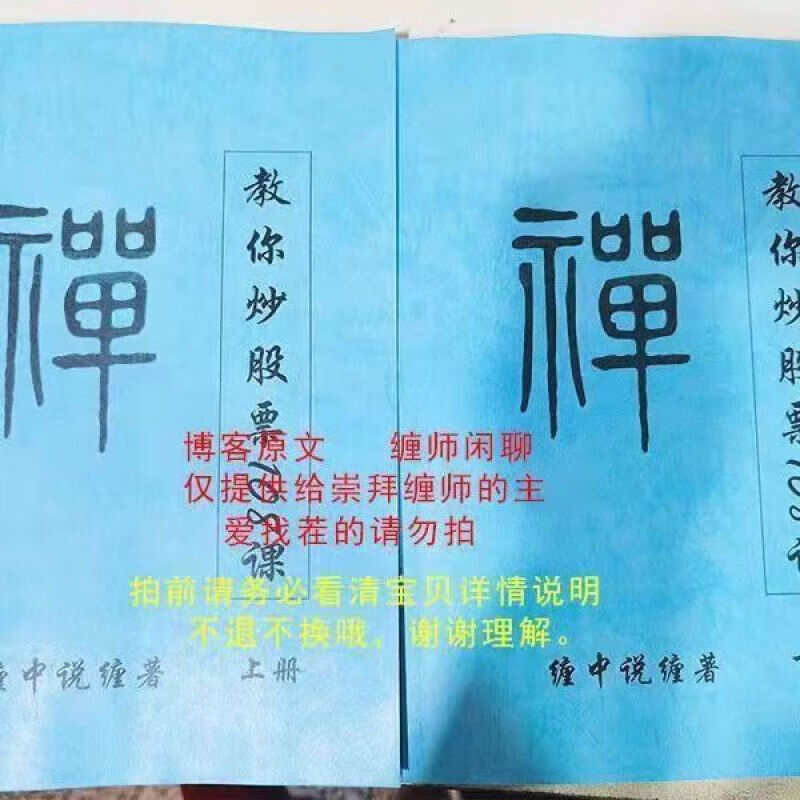 禪
教你炒股票108课
缠中说缠著
上册
禪
教你炒股票108课
缠中说缠著
博客原文 缠师闲聊
仅提供给崇拜缠师的主
爱找茬的请勿拍
拍前谓务必看清宝贝详情说明
不退不换哦，谢谢理解。